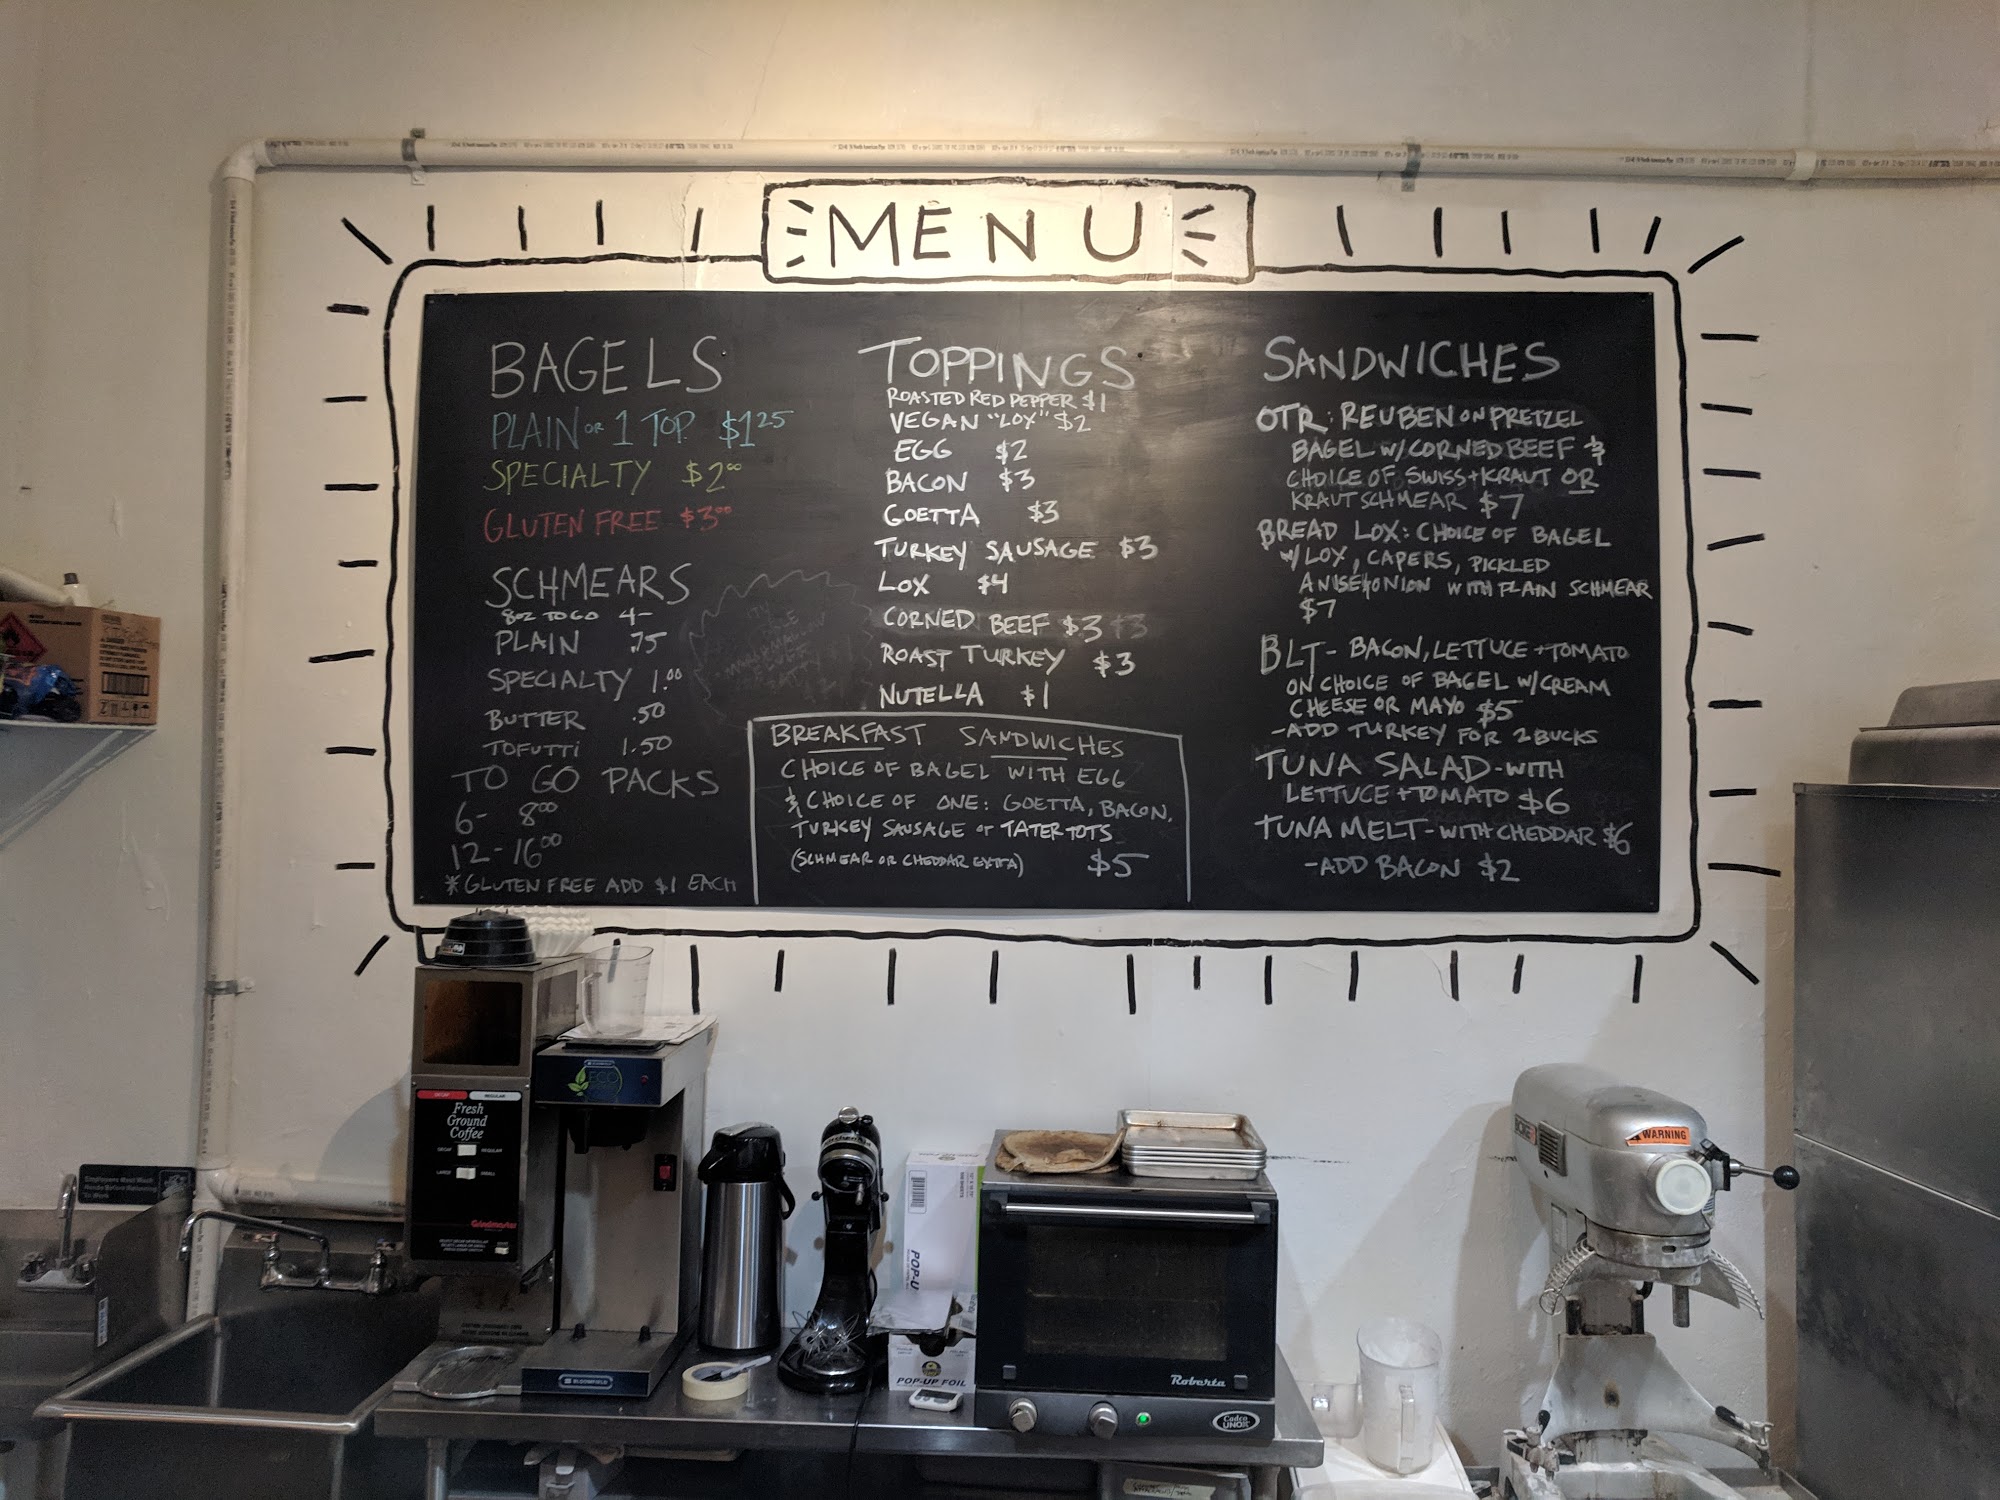 MENU
BAGELS
PLAIN OR 1 TOP $1.25
SPECIALTY $2.00
GLUTEN FREE $3.00
SCHMEARS
8OZ TO GO 4-
PLAIN .75
SPECIALTY 1.00
BUTTER .50
TOFUTTI 1.50
TO GO PACKS
6- 8.00
12-16.00
*GLUTEN FREE ADD $1 EACH
TOPPINGS
ROASTED RED PEPPER $1
VEGAN "LOX" $2
EGG $2
BACON $3
GOETTA $3
TURKEY SAUSAGE $3
LOX $4
CORNED BEEF $3
ROAST TURKEY $3
NUTELLA $1
BREAKFAST SANDWICHES
CHOICE OF BAGEL WITH EGG
& CHOICE OF ONE: GOETTA, BACON,
TURKEY SAUSAGE or TATER TOTS
(SCHMEAR OR CHEDDAR EXTRA) $5
SANDWICHES
OTR: REUBEN ON PRETZEL
BAGEL W/CORNED BEEF &
CHOICE OF SWISS+KRAUT OR
KRAUT SCHMEAR $7
BREAD LOX: CHOICE OF BAGEL
W/LOX, CAPERS, PICKLED
ONION WITH PLAIN SCHMEAR
$7
BLT- BACON, LETTUCE + TOMATO
ON CHOICE OF BAGEL W/CREAM
CHEESE OR MAYO $5
-ADD TURKEY FOR 2 BUCKS
TUNA SALAD-WITH
LETTUCE + TOMATO $6
TUNA MELT-WITH CHEDDAR $6
-ADD BACON $2
Employees Must Wash
Hands Before Returning
To Work
DECAF REGULAR
Fresh
Ground
Coffee
DECAF REGULAR
LARGE SMALL
Grindmaster
BLOOMFIELD
ECO
BLOOMFIELD
POP-U
POP-UP FOIL
Roberta
Cadco
UNOX
WARNING